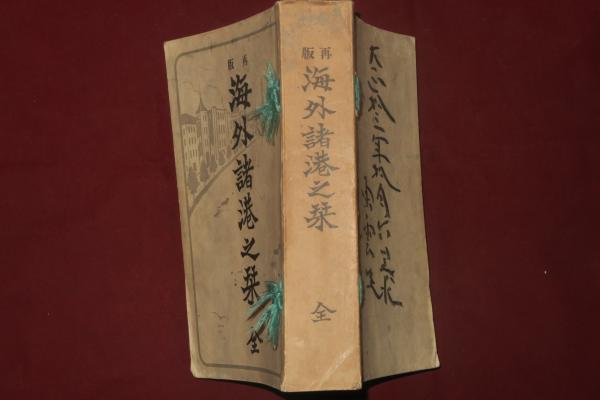 再版
海外諸港之栞
全
再版
海外諸港之栞
全
大正拾三年拾月六